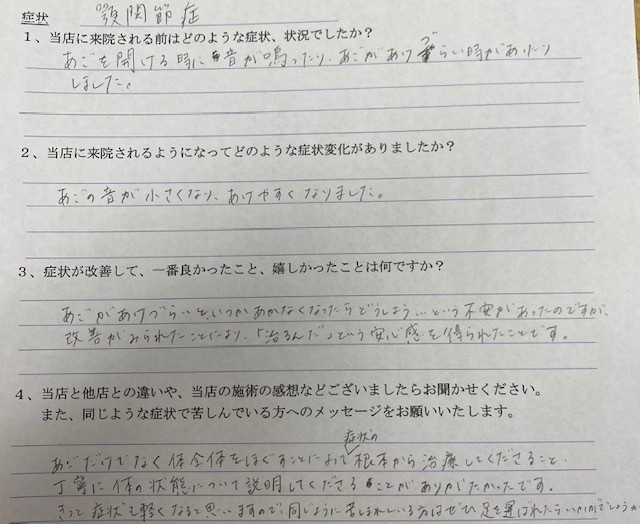 症状 顎関節症
1、当店に来院される前はどのような症状、状況でしたか？
あごを開ける時に音が鳴ったり、あごがあけづらい時があったり
しました。
2、当店に来院されるようになってどのような症状変化がありましたか？
あごの音が小さくなり、あけやすくなりました。
3、症状が改善して、一番良かったこと、嬉しかったことは何ですか？
あごがあけづらいと、いつかあかなくなったらどうしよう…という不安があったのですが、
改善がみられたことにより、「治るんだ」という安心感を得られたことです。
4、当店と他店との違いや、当店の施術の感想などございましたらお聞かせください。
また、同じような症状で苦しんでいる方へのメッセージをお願いいたします。
あごだけでなく体全体をほぐすことによって症状の根本から治療してくださること、
丁寧に体の状態について説明してくださることがありがたかったです。
きっと症状も軽くなると思いますので、同じように苦しまれている方はぜひ足を運ばれたらいかがでしょうか